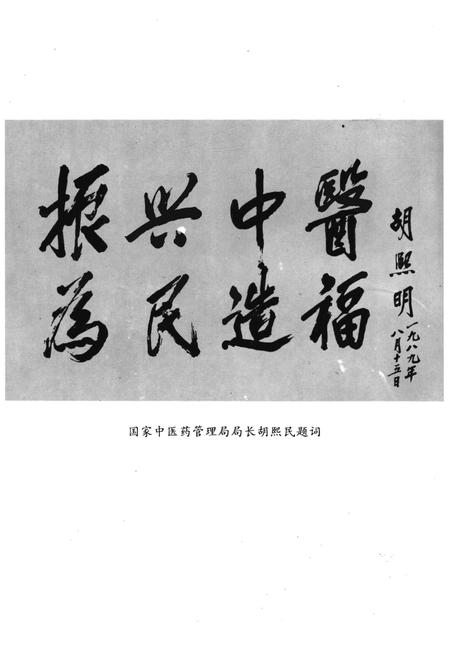 振兴中醫
為民造福
胡熙明
一九八九年
八月十五日
国家中医药管理局局长胡熙民题词